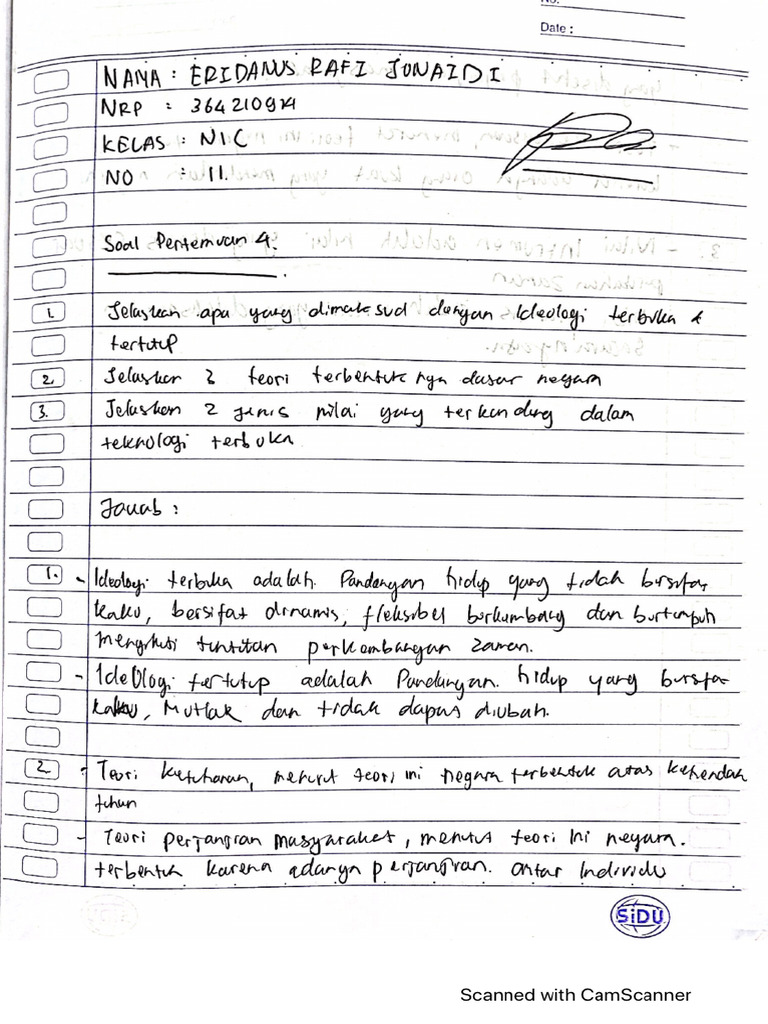 No.
Date :
NAMA : ERIDANUS RAFI JUNAIDI
NRP : 364210914
KELAS : N1C
NO : 11.
Soal Pertemuan 4.
1. Jelaskan apa yang dimaksud dengan Ideologi terbuka &
tertutup
2. Jelaskan 3 teori terbentuknya dasar negara
3. Jelaskan 2 jenis nilai yang terkandung dalam
teknologi terbuka
Jawab :
1. - Ideologi terbuka adalah Pandangan hidup yang tidak bersifat
kaku, bersifat dinamis, fleksibel berkembang dan bertumpuh
mengikuti tuntitan perkembangan zaman.
- Ideologi tertutup adalah Pandangan hidup yang bersifat
kaku, Mutlak dan tidak dapat diubah.
2. - Teori ketuhanan, menurut teori ini negara terbentuk atas kehendak
tuhan
- Teori perjanjian masyarakat, menurut teori Ini negara.
terbentuk karena adanya perjanjian. antar Individu
SiDU
Scanned with CamScanner